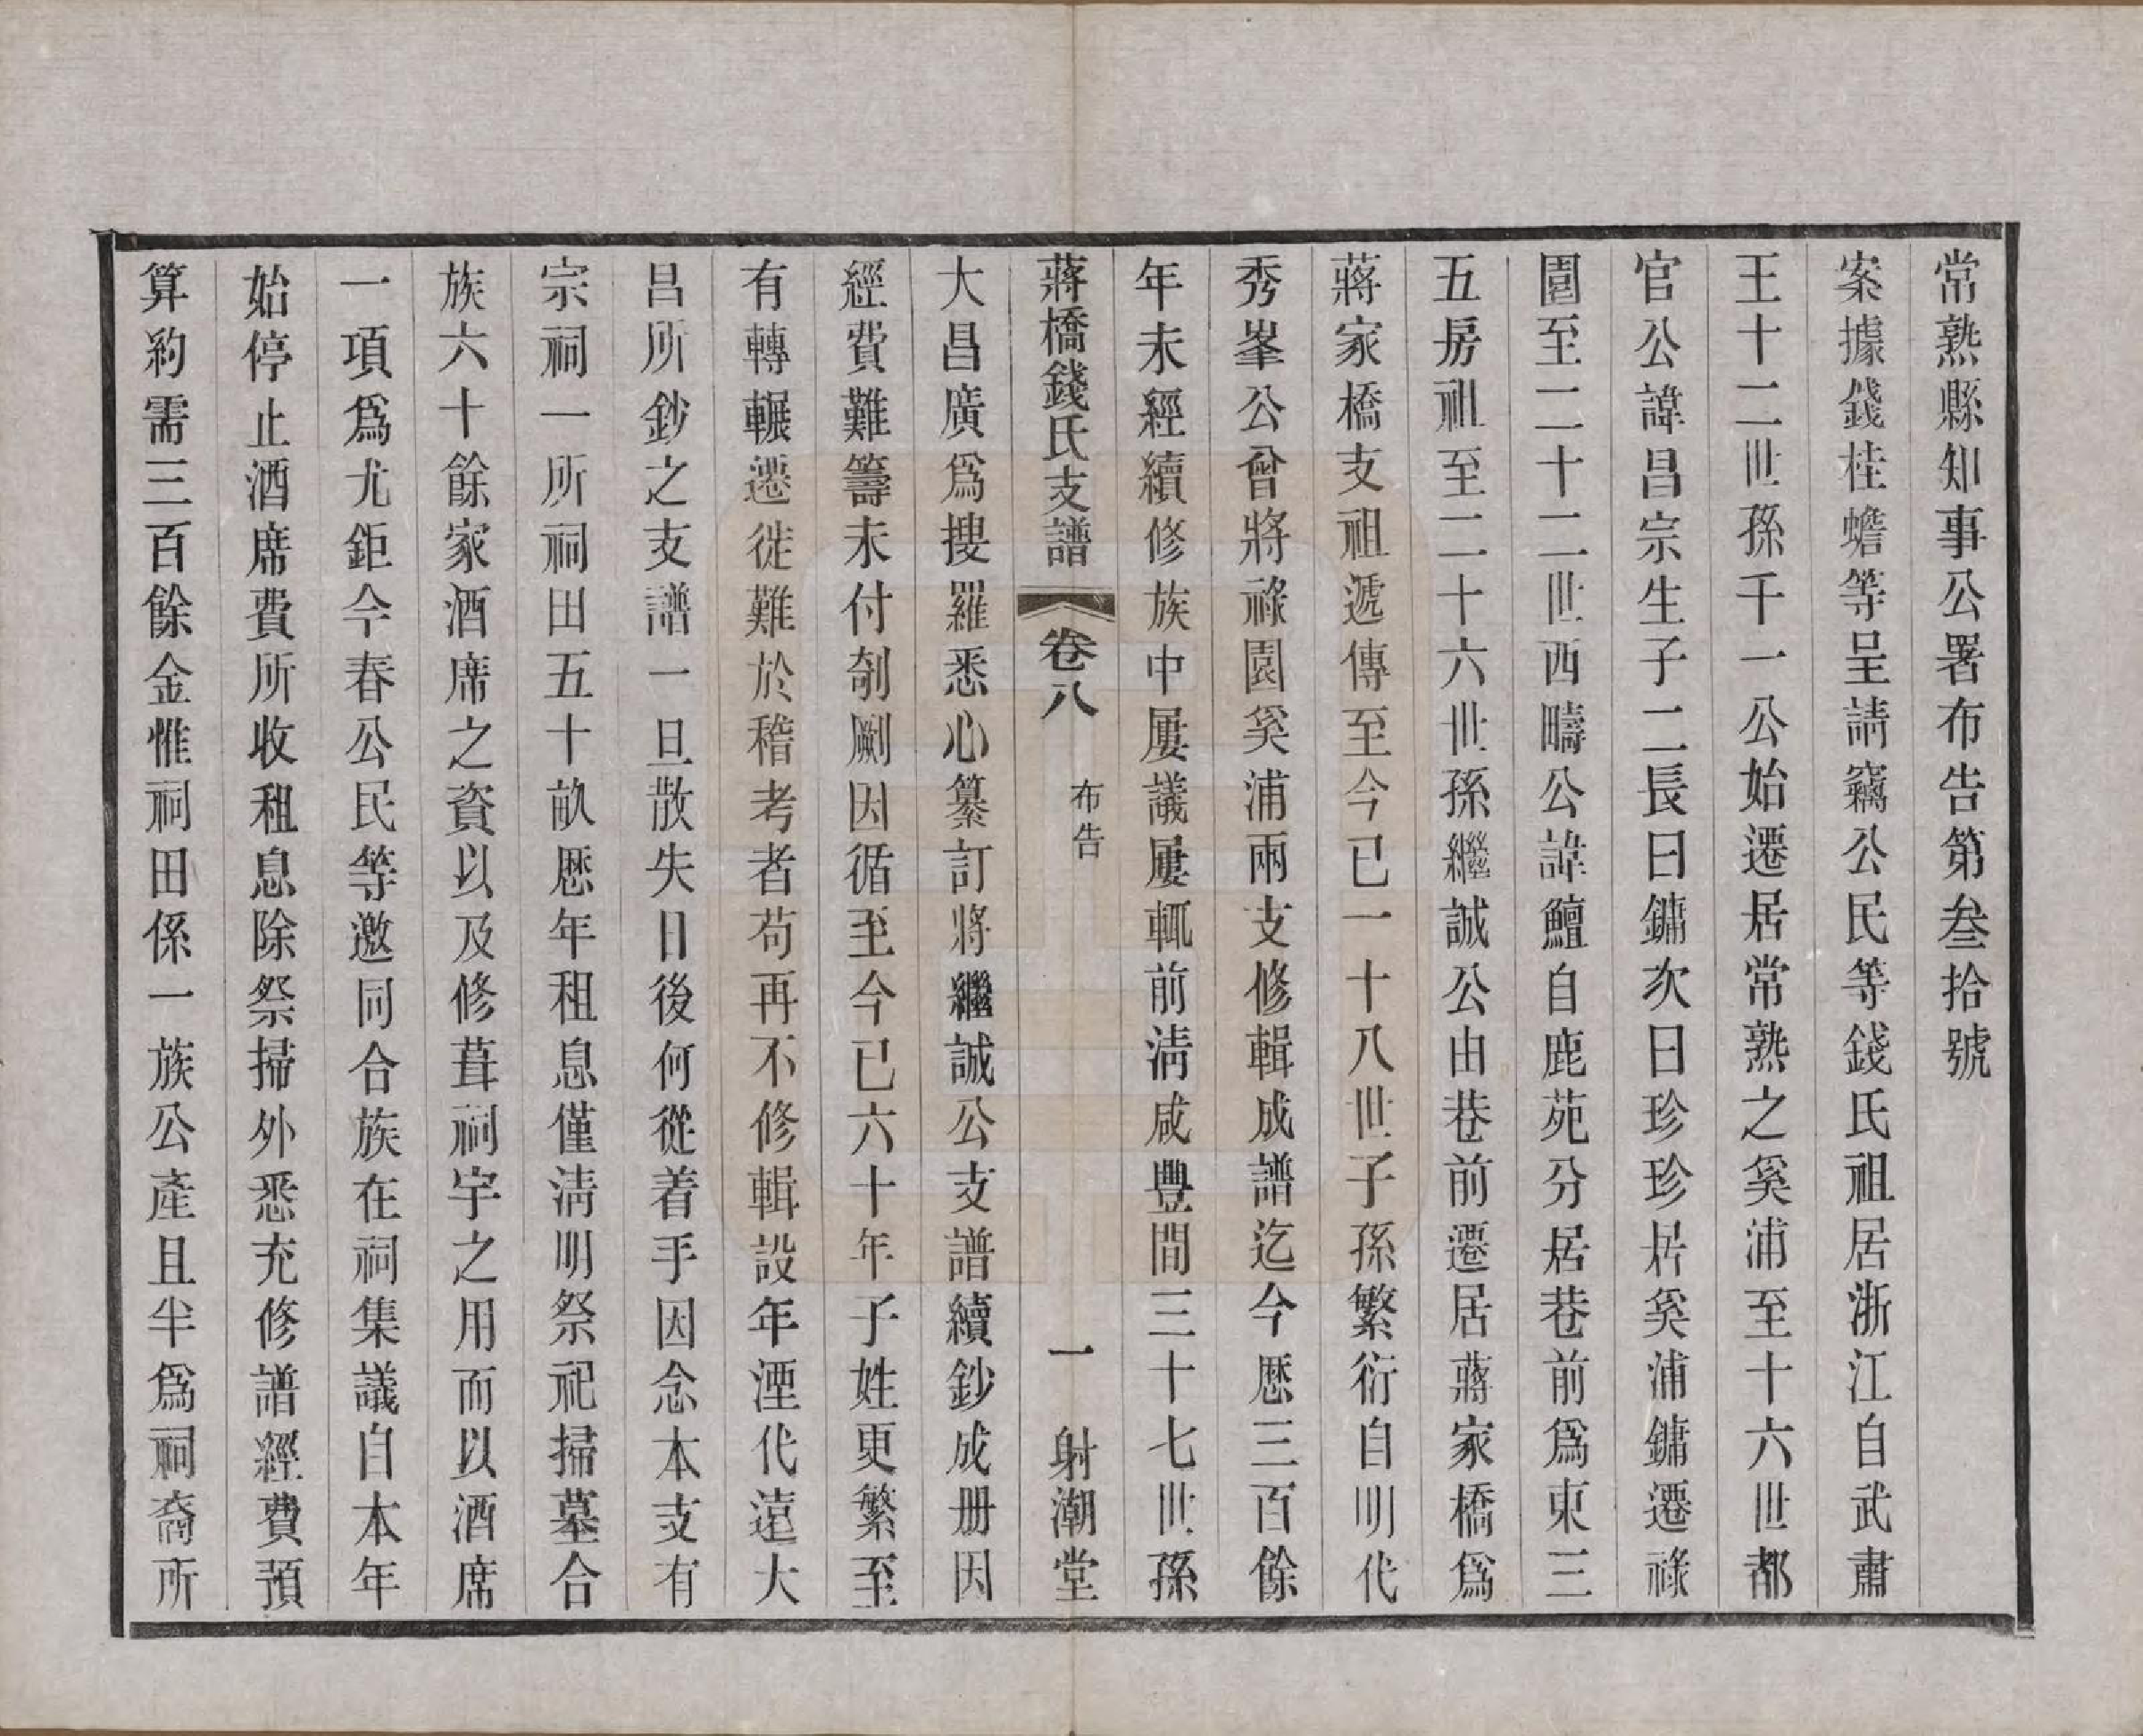 常熟縣知事公署布告第叁拾號
案據錢桂蟾等呈請竊公民等錢氏祖居浙江自武肅
王十二世孫千一公始遷居常熟之奚浦至十六世都
官公諱昌宗生子二長曰鏞次曰珍珍居奚浦鏞遷祿
園至二十二世西疇公諱鱣自鹿苑分居巷前爲東三
五房祖至二十六世孫繼誠公由巷前遷居蔣家橋爲
蔣家橋支祖遞傳至今已一十八世子孫繁衍自明代
秀峯公曾將祿園奚浦兩支修輯成譜迄今歷三百餘
年未經續修族中屢議屢輒前淸咸豐間三十七世孫
蔣橋錢氏支譜 卷八 布告 一 射潮堂
大昌廣爲搜羅悉心纂訂將繼誠公支譜續鈔成册因
經費難籌未付剞劂因循至今已六十年子姓更繁至
有轉輾遷徙難於稽考者苟再不修輯設年湮代遠大
昌所鈔之支譜一旦散失日後何從着手因念本支有
宗祠一所祠田五十畝歷年租息僅淸明祭祀掃墓合
族六十餘家酒席之資以及修葺祠宇之用而以酒席
一項爲尤鉅今春公民等邀同合族在祠集議自本年
始停止酒席費所收租息除祭掃外悉充修譜經費預
算約需三百餘金惟祠田係一族公產且半爲祠裔所